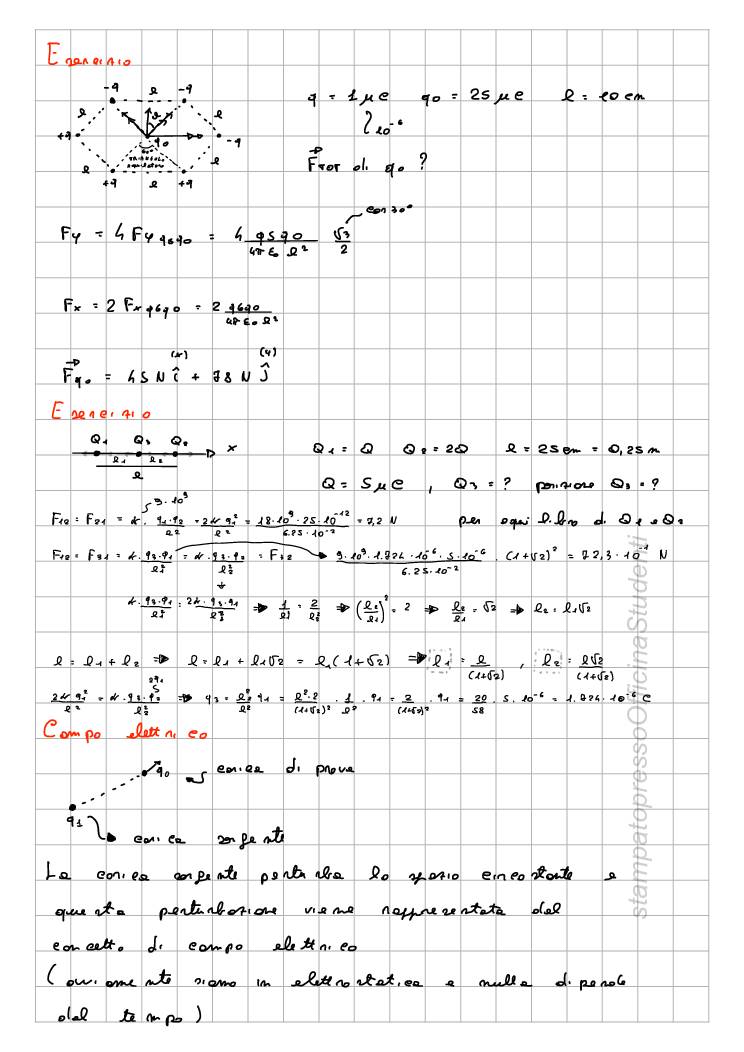 Esercizio
-q l -q
l θ l
+q q0 -q
60°
TRIANGOLO
EQUILATERO
l l
+q l +q
q = 1 μC q0 = 25 μC l = 10 cm
10⁻⁶
F⃗TOT di q0 ?
cos 30°
Fy = 4 Fy q5q0 = 4 q5q0 / 4πε0 l² √3/2
Fx = 2 Fx q6q0 = 2 q6q0 / 4πε0 l²
(x) (y)
F⃗q0 = 45 N î + 78 N ĵ
Esercizio
Q1 Q3 Q2 x
l1 l2
l
Q1 = Q Q2 = 2Q l = 25 cm = 0,25 m
Q = 5 μC , Q3 = ? posizione Q3 = ?
9·10⁹
F12 = F21 = K · q1·q2 / l² = 2K q1² / l² = 18·10⁹·25·10⁻¹² / 6.25·10⁻² = 7,2 N per equilibrio di Q1 e Q2
F12 = F31 = K · q3·q1 / l1² = K · q3·q2 / l2² = F32 → 9·10⁹·1.724·10⁻⁶·5·10⁻⁶ / 6.25·10⁻² · (1+√2)² = 72,3·10⁻¹ N
K · q3·q1 / l1² = 2K · q3·q1 / l2² ⇒ 1/l1² = 2/l2² ⇒ (l2/l1)² = 2 ⇒ l2/l1 = √2 ⇒ l2 = l1√2
l = l1 + l2 ⇒ l = l1 + l1√2 = l1(1+√2) ⇒ l1 = l/(1+√2) , l2 = l√2/(1+√2)
2q1
2K q1² / l² = K · q3·q2 / l2² ⇒ q3 = l2²/l² q1 = l²·2/(1+√2)² · 1/l² · q1 = 2/(1+√2)² · q1 = 20/58 · 5·10⁻⁶ = 1.724·10⁻⁶ C
Campo elettrico
q0 carica di prova
q1
carica sorgente
La carica sorgente perturba lo spazio circostante e
questa perturbazione viene rappresentata dal
concetto di campo elettrico
(ovviamente siamo in elettrostatica e nulla dipende
dal tempo)
stampatopressoOfficinaStudenti